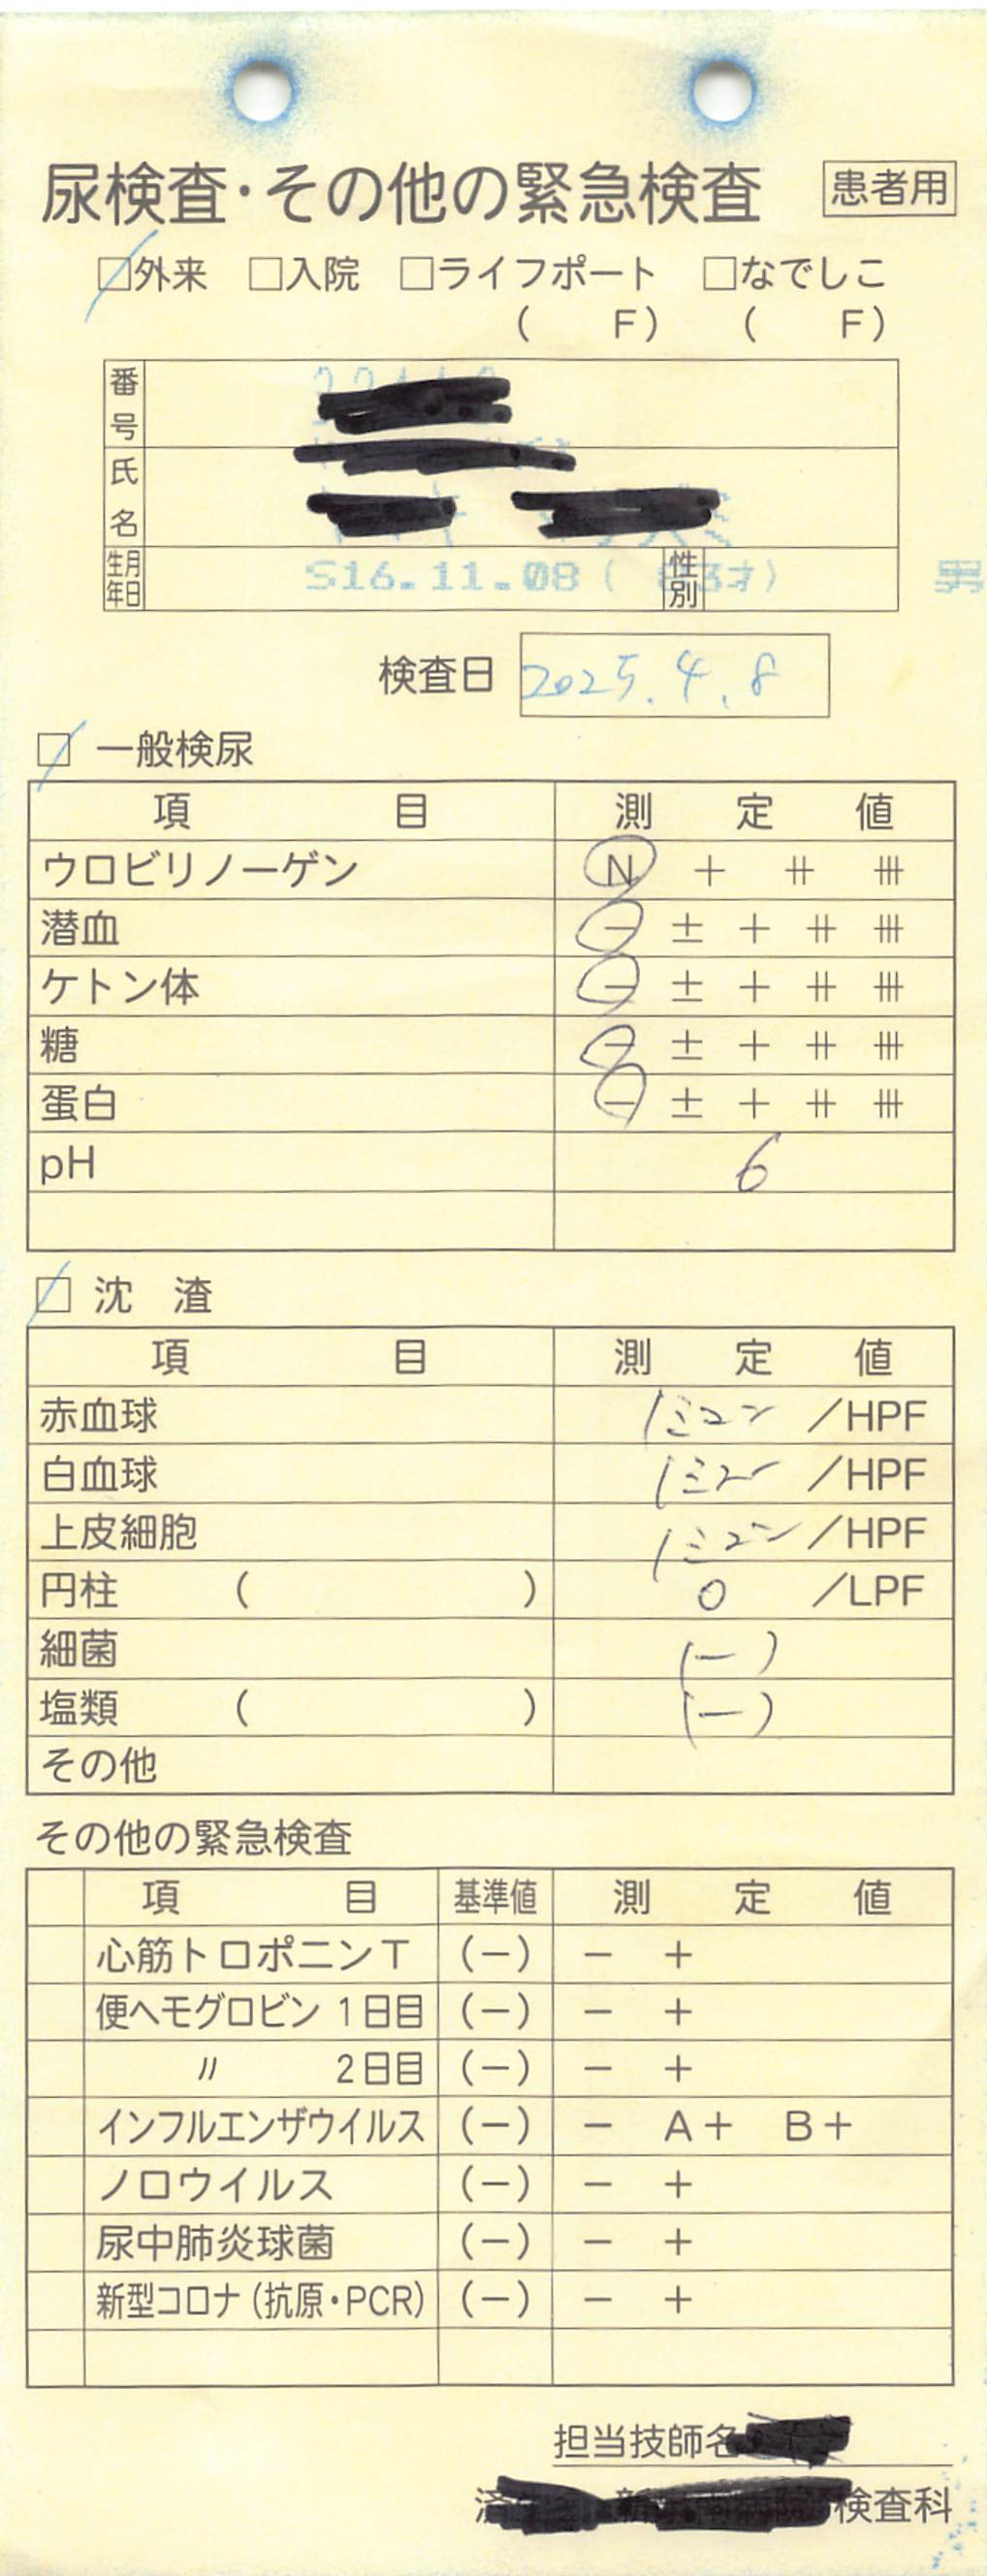 尿検査・その他の緊急検査 患者用
□外来 □入院 □ライフポート □なでしこ
( F) ( F)
番号
氏名
生年月日 S16.11.08( 83才) 性別 男
検査日 2025.4.8
□ 一般検尿
項目 測定値
ウロビリノーゲン N + ⧺ ⧻
潜血 - ± + ⧺ ⧻
ケトン体 - ± + ⧺ ⧻
糖 - ± + ⧺ ⧻
蛋白 - ± + ⧺ ⧻
pH 6
□ 沈渣
項目 測定値
赤血球 /HPF
白血球 /HPF
上皮細胞 /HPF
円柱 ( ) 0 /LPF
細菌 (-)
塩類 ( ) (-)
その他
その他の緊急検査
項目 基準値 測定値
心筋トロポニンT (-) - +
便ヘモグロビン 1日目 (-) - +
〃 2日目 (-) - +
インフルエンザウイルス (-) - A+ B+
ノロウイルス (-) - +
尿中肺炎球菌 (-) - +
新型コロナ(抗原・PCR) (-) - +
担当技師名
検査科